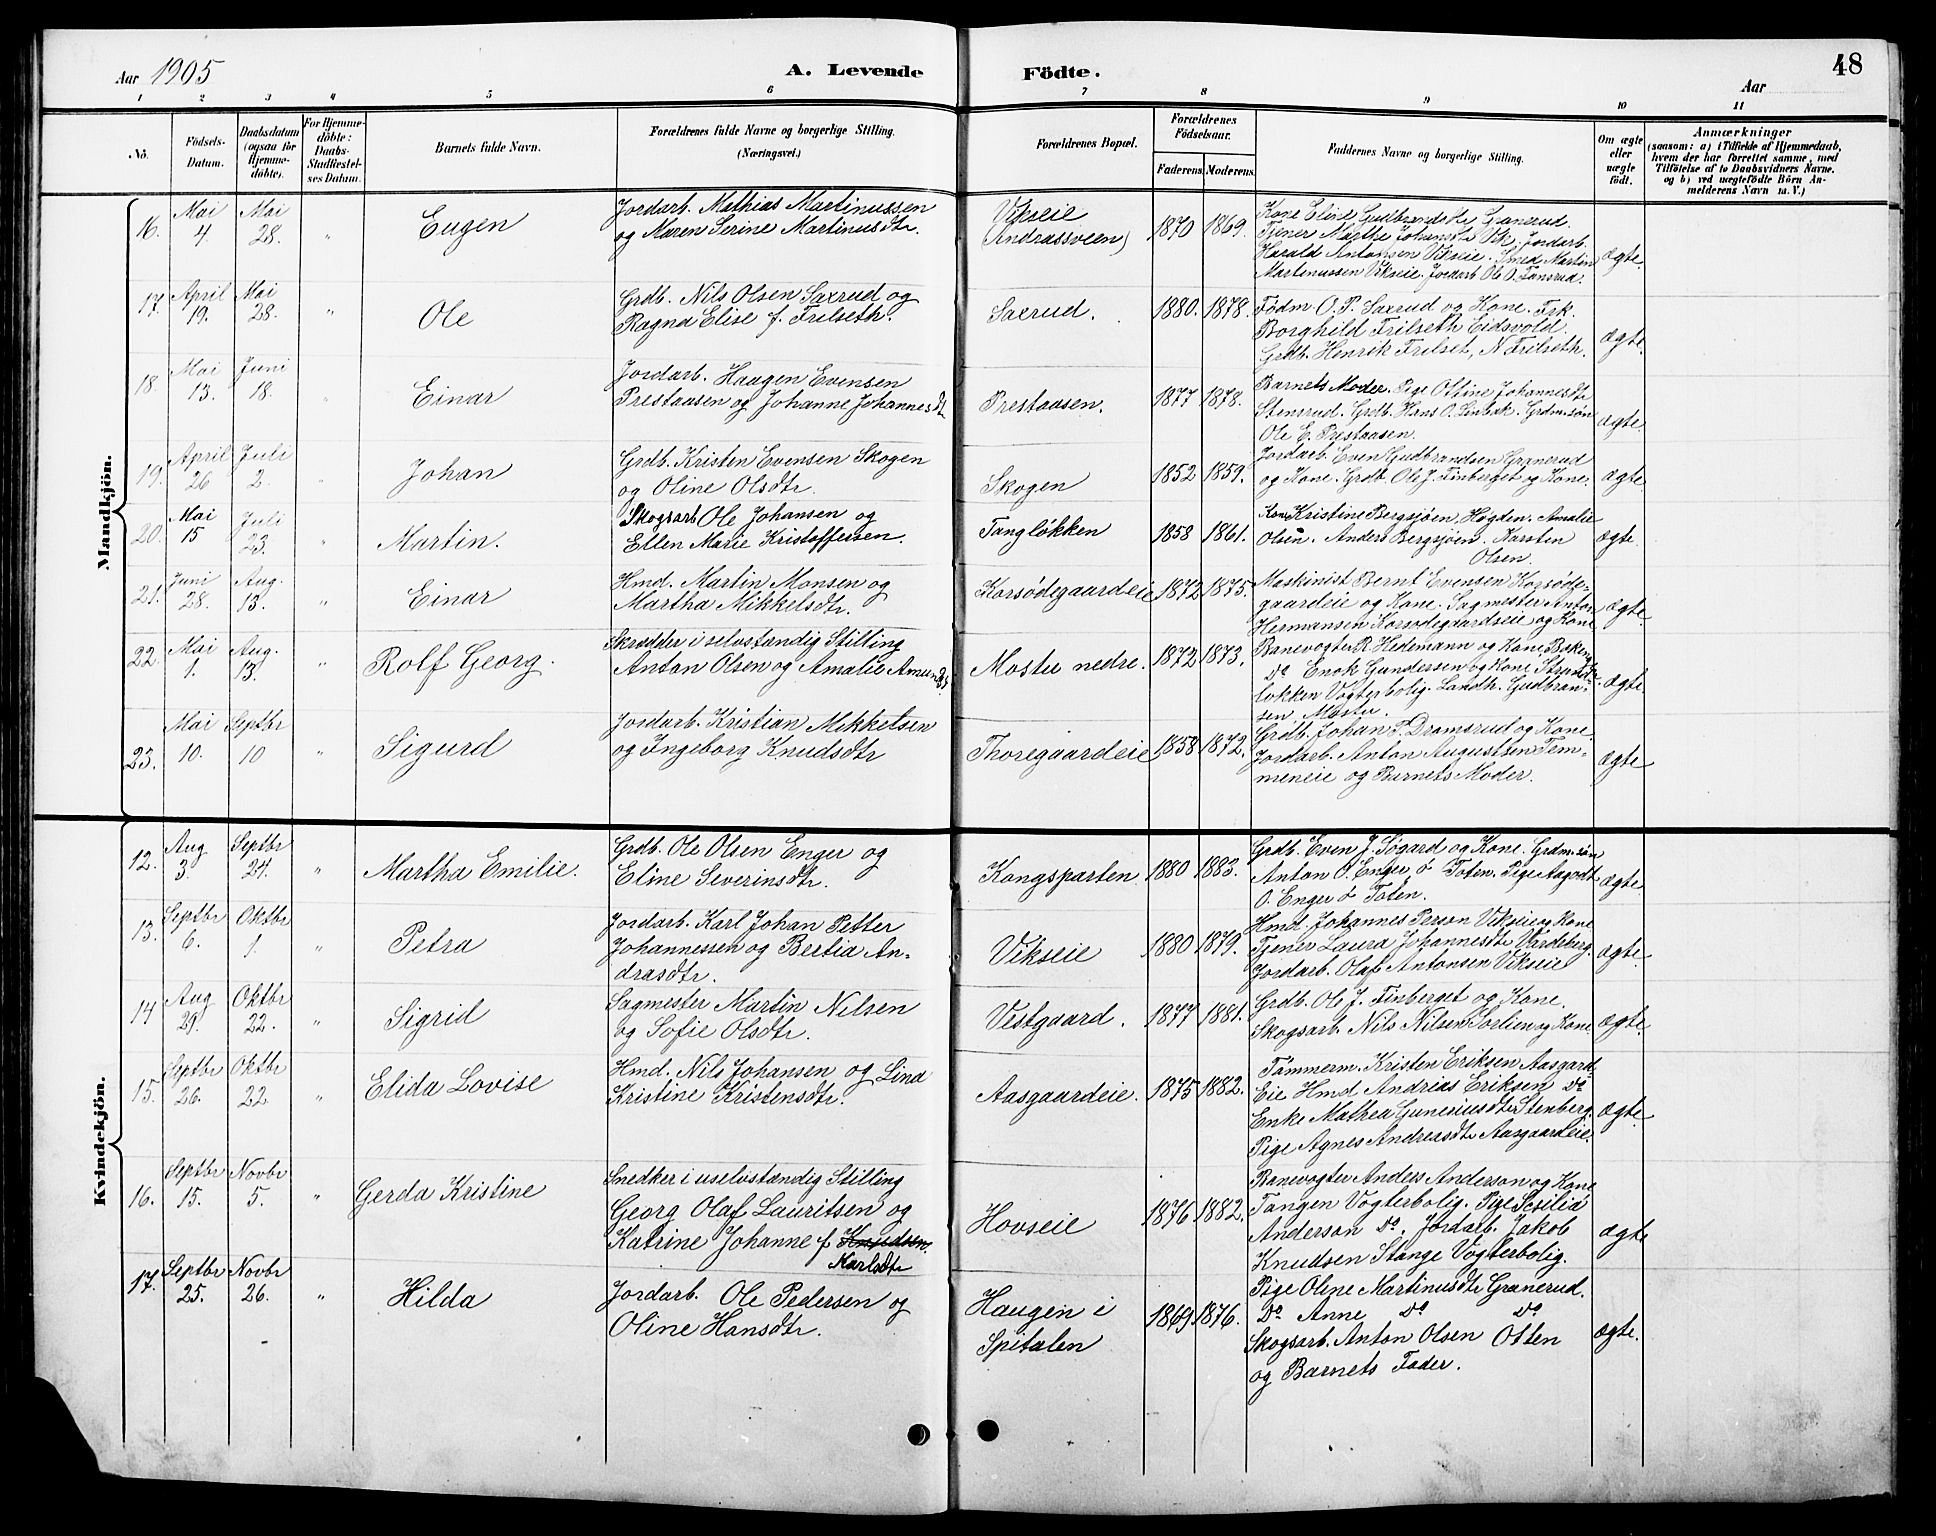 Aar 1905
A. Levende Födte.
48
Aar
1 2 3 4 5 6 7 8 9 10 11
No.
Födsels-
Datum.
Daabsdatum
(ogsaa för
Hjemme-
döbte).
For Hjemme-
döbte:
Daabs-
Stadfæstel-
ses Datum.
Barnets fulde Navn.
Forældrenes fulde Navne og borgerlige Stilling.
(Næringsvei.)
Forældrenes Bopæl.
Forældrenes
Födselsaar.
Faderens. Moderens.
Faddernes Navne og borgerlige Stilling.
Om ægte
eller
uægte
födt.
Anmærkninger
(saasom: a) i Tilfælde af Hjemmedaab,
hvem der har forrettet samme, med
Tilföielse af to Daabsvidners Navne.
og b) ved uægtefödte Börn An-
melderens Navn m. V.)
Mandkjön.
16. Mai 4. Mai 28. " Eugen
Jordarb. Mathias Martinussen
og Maren Serine Martinusdtr.
Vikseie
(Andrassveen)
1870 1869.
Kone Elise Gudbrandsdtr Granerud.
Tjener Marthe Johansdtr Vik. Jordarb.
Harald Antonsen Vikseie. Smed Martin
Martinussen Vikseie. Jordarb Ole O. Tansrud.
ægte.
17. April 19. Mai 28. " Ole
Grdb. Nils Olsen Saxrud og
Ragna Elise f. Frilseth.
Saxrud.
1880. 1878.
Födm O. P. Saxrud og Kone. Frk.
Borghild Frilseth Eidsvold.
Grdb. Henrik Frilset, N Frilseth.
ægte.
18. Mai 13. Juni 18. " Einar
Jordarb. Haagen Evensen
Prestaasen og Johanne Johannesdt
Prestaasen.
1877 1878.
Barnets Moder. Pige Oltine Johannesdtr
Stensrud. Grdb. Hans O. Linbæk. Grdm.søn
Ole E. Prestaasen.
ægte.
19. April 26 Juli 2. " Johan
Grdb. Kristen Evensen Skogen
og Oline Olsdtr.
Skogen
1852 1859.
Jordarb. Even Gudbrandsen Granerud
og Kone. Grdb. Ole J. Finberget og Kone.
ægte.
20. Mai 15 Juli 23. " Martin.
Skogsarb Ole Johansen og
Ellen Marie Kristoffersen.
Tangløkken
1858 1861.
Kone Kristine Bergsjøen, Høgden. Amalie
Olsen. Anders Bergsjøen. Karsten
Olsen.
ægte.
21. Juni 28. Aug. 13. " Einar
Hmd. Martin Monsen og
Martha Mikkelsdtr.
Korsödegaardeie
1872 1875.
Maskinist Bernt Evensen Korsöde-
gaardeie og Kone. Sagmester Anton
Hermansen Korsödegaardseie og Kone
ægte.
22. Mai 1. Aug. 13. " Rolf Georg.
Skrædder i selvstændig Stilling
Anton Olsen og Amalie Amundsdt.
Mostu nedre.
1872 1873.
Banevogter R. Hedemann og Kone Bekens
Do Enok Gundersen og Kone Strand-
løkken Vogterbolig. Landh. Gudbran-
sen Mostu.
ægte.
23. Mai 10. Septbr 10 " Sigurd
Jordarb. Kristian Mikkelsen
og Ingeborg Knudsdtr
Thoregaardeie
1858 1872.
Grdb. Johan P. Dramsrud og Kone
Jordarb. Anton Augustsen Tem-
meneie og Barnets Moder.
ægte
Kvindekjön.
12. Aug 3. Septbr 24. " Martha Emilie.
Grdb. Ole Olsen Enger og
Eline Severinsdtr.
Kongsparten
1880 1883.
Grdb. Even J. Søgard og Kone. Grdm.søn
Anton O. Enger ö Toten. Pige Aagodt
O. Enger ö Toten.
ægte.
13. Septbr 6. Oktbr 1. " Petra
Jordarb. Karl Johan Petter
Johannessen og Bertia An-
drasdtr.
Vikseie
1880 1879.
Hmd. Johannes Person Vikseie og Kone
Tjener Laura Johannesdtr Vardeberg.
Jordarb. Olaf Antonsen Vikseie
ægte.
14 Aug 29. Oktbr 22. " Sigrid
Sagmester Martin Nilsen
og Sofie Olsdtr.
Vestgaard.
1877 1881.
Grdb. Ole J. Finberget og Kone.
Skogsarb. Nils Nilsen Sorlien og Kone
ægte.
15. Septbr 26. Oktbr 22 " Elida Lovise
Hmd. Nils Johansen og Lina
Kristine Kristensdtr.
Aasgaardeie.
1875 1882.
Tömmerm. Kristen Eriksen Aasgard
Eie Hmd Andrias Eriksen Do
Enke Mathea Guneriusdtr Stenberg.
Pige Agnes Andreasdtr Aasgaardeie.
ægte.
16. Septbr 15. Novbr 5. " Gerda Kristine
Snedker i uselvstændig Stilling
Georg Olaf Lauritsen og
Katrine Johanne f. Knudsen.
Karlsdtr
Hovseie
1876 1882.
Banevogter Anders Anderson og Kone
Tangen Vogterbolig. Pige Sesilia
Anderson Do. Jordarb. Jakob
Knudsen Stange Vogterbolig.
ægte
17. Septbr 25. Novbr 26. " Hilda
Jordarb. Ole Pedersen og
Oline Hansdtr.
Haugen i
Spitalen
1869 1876.
Pige Oline Martinusdtr Granerud.
Do Anne Do Do
Skogsarb. Anton Olsen Otten
og Barnets Fader.
ægte.